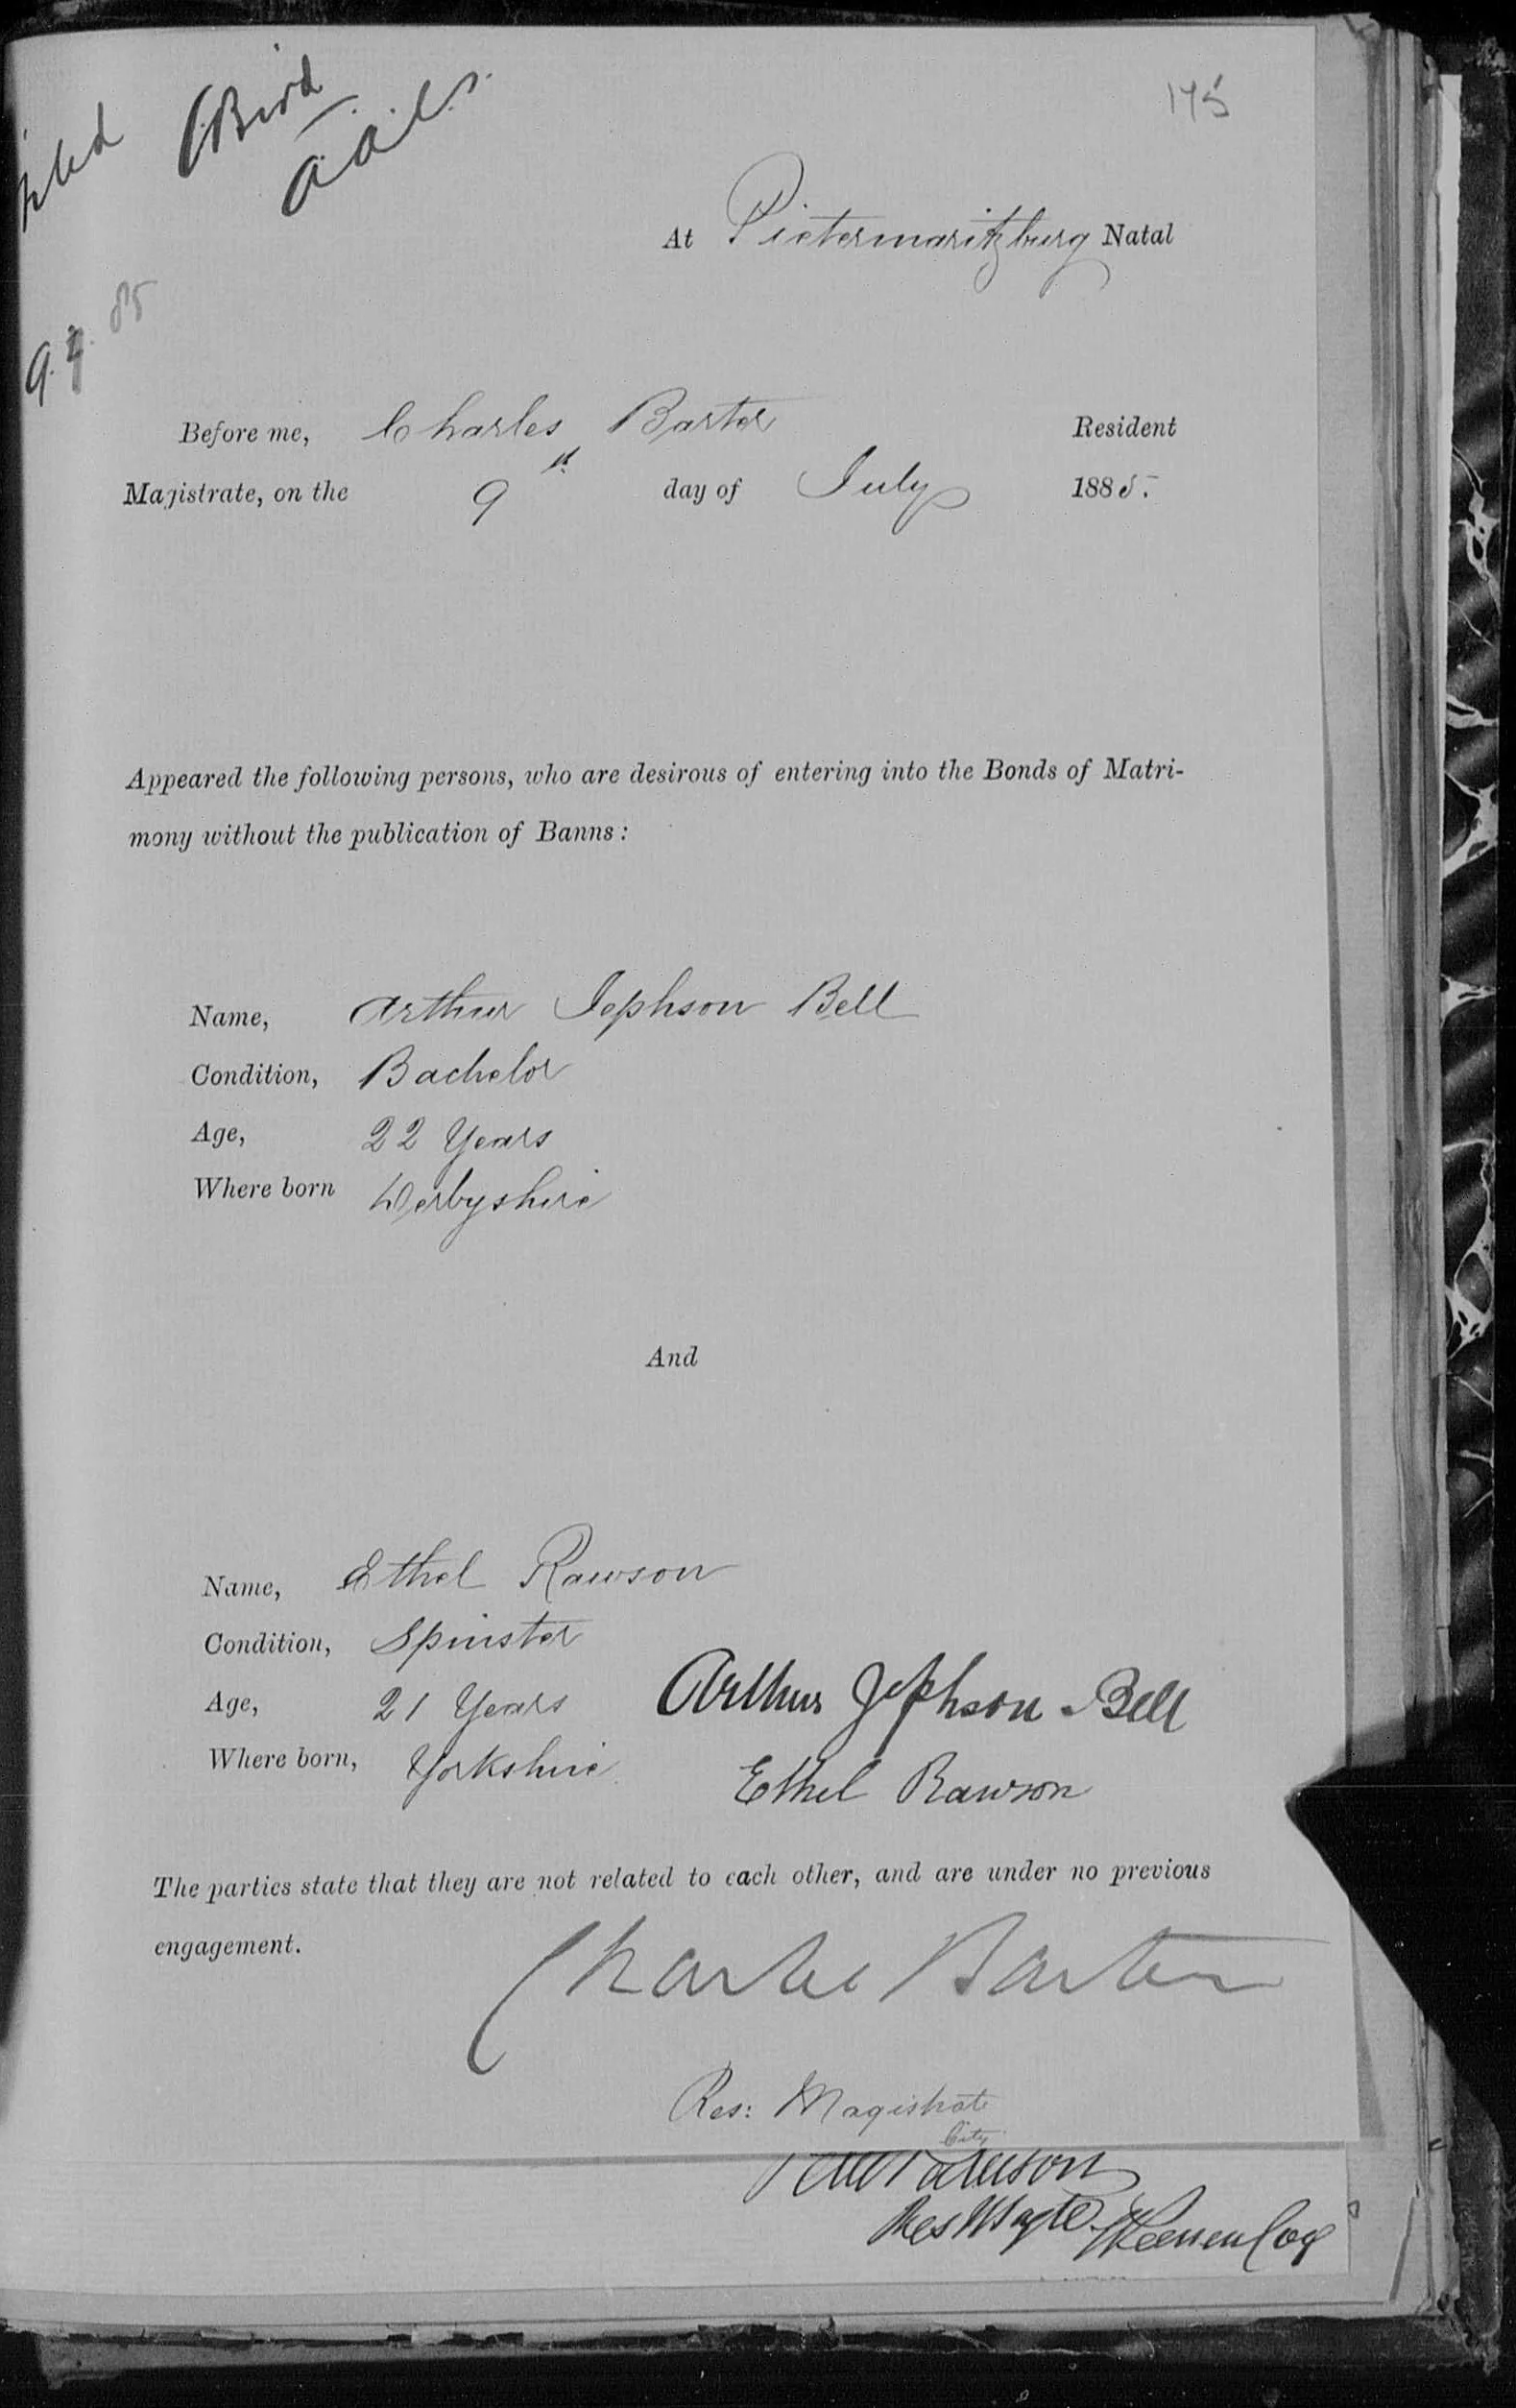 CBird
A.A.C.S.
175
At Pietermaritzburg Natal
9.7.85
Before me, Charles Barter Resident
Magistrate, on the 9th day of July 1885.
Appeared the following persons, who are desirous of entering into the Bonds of Matri-
mony without the publication of Banns:
Name, Arthur Jephson Bell
Condition, Bachelor
Age, 22 Years
Where born Derbyshire
And
Name, Ethel Rawson
Condition, Spinster
Age, 21 Years
Where born, Yorkshire
Arthur Jephson Bell
Ethel Rawson
The parties state that they are not related to each other, and are under no previous
engagement.
Charles Barter
Res: Magistrate
City
Paterson
Res Magte. Weenen Coy